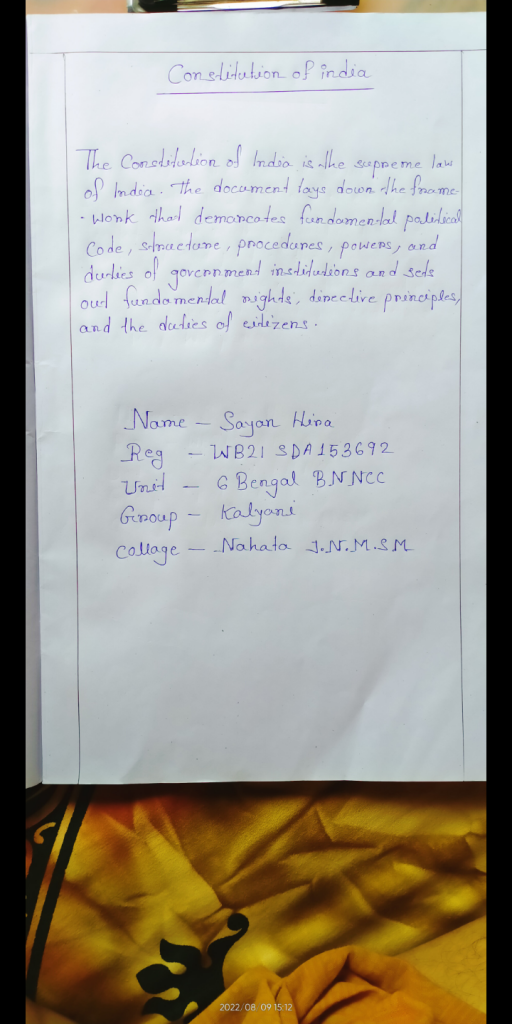 Constitution of india
The Constitution of India is the supreme law
of India. The document lays down the frame-
- work that demarcates fundamental political
Code, structure, procedures, powers, and
duties of government institutions and sets
out fundamental rights, directive principles,
and the duties of citizens.
Name - Sayan Hira
Reg - WB21 SDA153692
Unit - 6 Bengal BN NCC
Group - Kalyani
Collage - Nahata J.N.M.S.M
2022/08/09 15:12